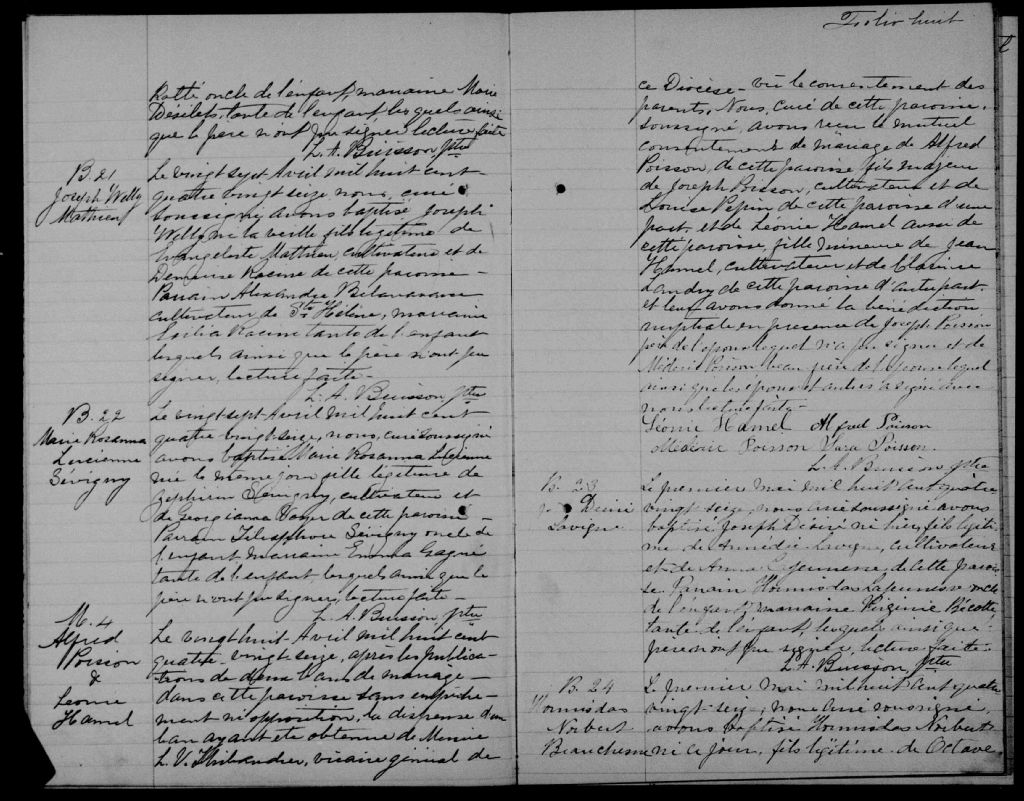 Ratté oncle de l'enfant, marraine Marie
Désilets, tante de l'enfant, lesquels ainsi
que le père n'ont pu signer lecture faite
L. A. Buisson Ptre
B. 21
Joseph Welly
Mathieu
Le vingt sept Avril mil huit cent
quatre vingt seize nous, curé
soussigné avons baptisé Joseph
Welly né la veille fils légitime de
Evangeliste Mathieu, cultivateur et de
Racine de cette paroisse -
Parrain Alexandre
cultivateur de Ste Hélène, marraine
Racine tante de l'enfant
lesquels ainsi que le père n'ont pu
signer, lecture faite -
L. A. Buisson, Ptre
B. 22
Marie Rosanna
Lucienne
Sévigny
Le vingt-sept Avril mil huit cent
quatre vingt-seize, nous, curé soussigné
avons baptisé Marie Rosanna Lucienne
née le même jour fille légitime de
Zéphirin Sévigny, cultivateur et
de Georgianna de cette paroisse -
Parrain Télesphore Sévigny oncle de
l'enfant, marraine Emma Gagné
tante de l'enfant lesquels ainsi que le
père n'ont pu signer, lecture faite -
L. A. Buisson Ptre
M. 4
Alfred
Poisson
&
Leonie
Hamel
Le vingt huit Avril mil huit cent
quatre-vingt-seize, après les publica-
tions de deux bans de mariage -
dans cette paroisse sans empêche-
ment ni opposition, la dispense d'un
ban ayant été obtenue de Messire
L. V. Thibaudier, vicaire général de
Folio huit
ce Diocèse - vu le consentement des
parents, Nous, curé de cette paroisse,
soussigné, avons reçu le mutuel
consentement de mariage de Alfred
Poisson, de cette paroisse, fils majeur
de Joseph Poisson, cultivateur et de
Louise Pepin de cette paroisse d'une
part, et de Léonie Hamel aussi de
cette paroisse, fille mineure de Jean
Hamel, cultivateur et de Clarisse
Landry de cette paroisse d'autre part,
et leur avons donné la bénédiction
nuptiale en présence de Joseph Poisson
père de l'époux lequel n'a pu signer et de
Médéric Poisson beau-père de l'épouse lequel
ainsi que les époux et autres a signé avec
nous lecture faite -
Léonie Hamel Alfred Poisson
Médéric Poisson Poisson.
L. A. Buisson Ptre
B. 23
Désiré
Lavigne
Le premier mai mil huit cent quatre
vingt-seize, nous curé soussigné avons
baptisé Joseph Désiré né hier, fils légiti-
me de Amédée Lavigne, cultivateur
et de Anna Lajeunesse, de cette parois-
se. Parrain Hormisdas Lajeunesse oncle
de l'enfant, marraine Virginie Bécotte
tante de l'enfant, lesquels ainsi que
père n'ont pu signer, lecture faite -
L. A. Buisson, Ptre
B. 24
Hormisdas
Norbert
Beauchesne
Le premier mai mil huit cent quatre
vingt-seize, nous curé soussigné,
avons baptisé Hormisdas Norbert
né ce jour, fils légitime de Octave